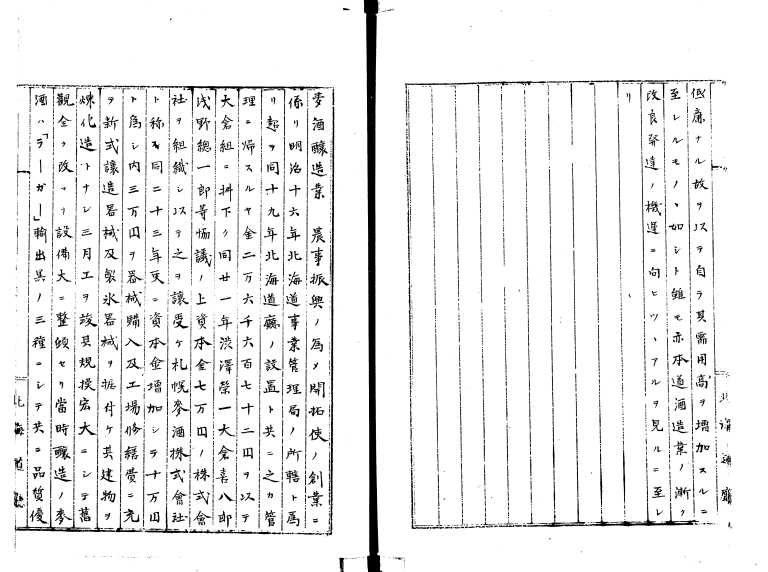 低廉ナル故ヲ以テ自ラ其需用高ヲ増加スルニ
至レルモノヽ如シト雖モ亦本道酒造業ノ漸ク
改良発達ノ機運ニ向ヒツヽアルヲ見ルニ至レ
リ
北海道廳
麦酒醸造業 農事振興ノ為メ開拓使ノ創業ニ
係リ明治十六年北海道事業管理局ノ所轄ト為
リ超ヲ同十九年北海道廳ノ設置ト共ニ之カ管
理ニ帰スルヤ金二万六千六百七十二円ヲ以テ
大倉組ニ拂下ケ同廿一年渋澤榮一大倉喜八郎
浅野總一郎等協議ノ上資本金七万円ノ株式會
社ヲ組織シ以テ之ヲ譲受ケ札幌麥酒株式會社
ト称ス同二十三年更ニ資本金増加シテ十万円
ト為シ内三万円ヲ器械購入及工場修繕費ニ充
ヲ新式醸造器械及製氷器械ヲ据付ケ其建物ヲ
煉化造トナシ三月工ヲ竣其規模宏大ニシテ舊
観全ク改マリ設備大ニ整頓セリ當時醸造ノ麥
酒ハ「ラーガー」輸出黒ノ三種ニシテ共ニ品質優
北海道廳